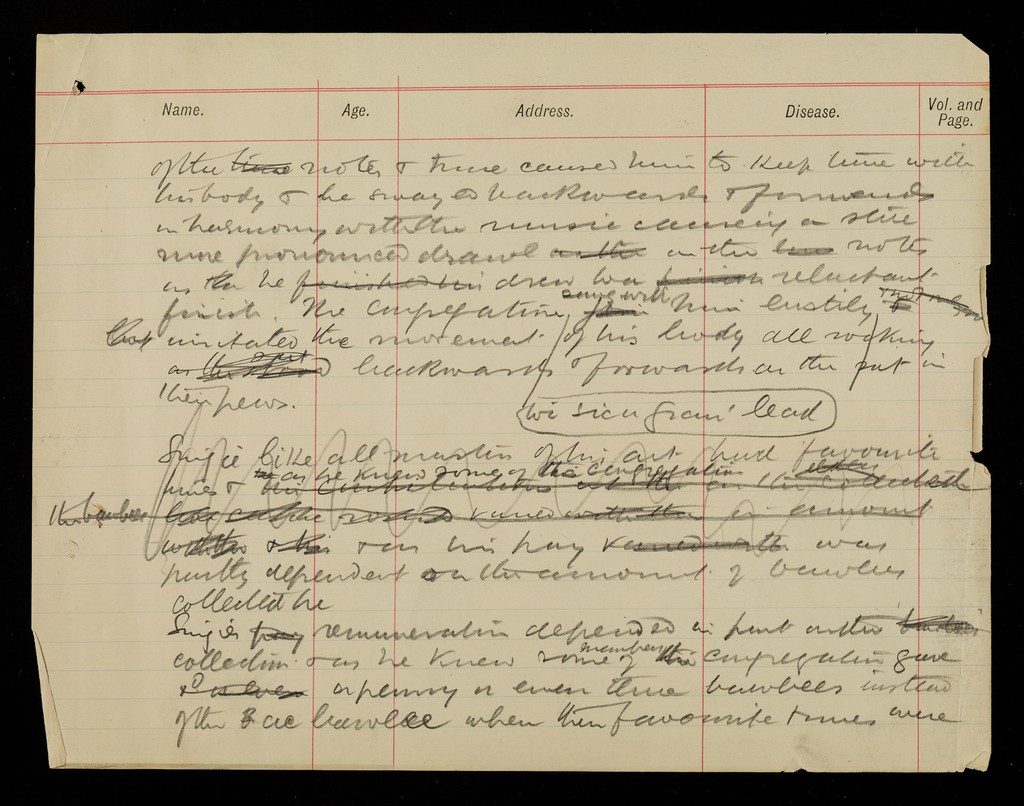 Name. Age. Address. Disease. Vol. and Page.
of the time notes & tune caused him to keep time with
his body & he swayed backwards & forwards
in harmony with the music causing a still
more pronounced drawl as the in the notes
as he finished his drew to a finish reluctant
finish. The congregation sang with him lustily &
imitated the movement of his body all rocking
as backwards & forwards as the sat in
their pews.
wi sican gran' lead
Singie like all masters of his art had favourite
tunes & as he knew some of the congregation
the bawbees varied with the in amount
& as his pay varied with was
partly dependent on the amount of bawbees
collected he
Singie's pay remuneration depended in part on the
collection & as he knew some members of the congregation gave
a penny or even three bawbees instead
of the ae bawbee when their favourite tunes were